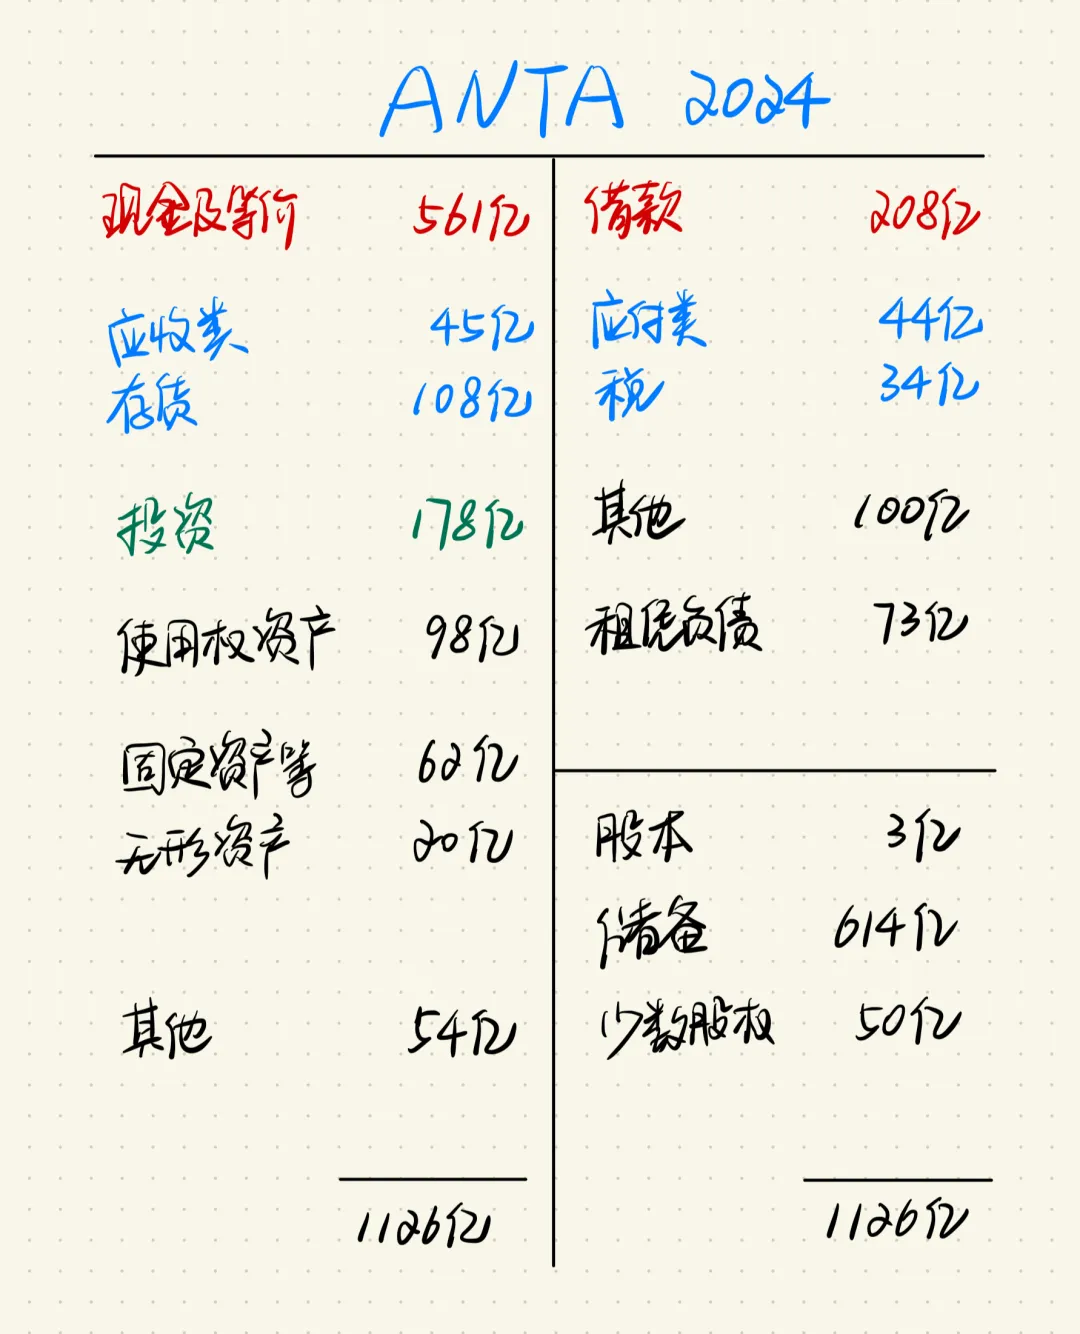 ANTA 2024
现金及等价 561亿
应收类 45亿
存货 108亿
投资 178亿
使用权资产 98亿
固定资产等 62亿
无形资产 20亿
其他 54亿
1126亿
借款 208亿
应付类 44亿
税 34亿
其他 100亿
租赁负债 73亿
股本 3亿
储备 614亿
少数股权 50亿
1126亿